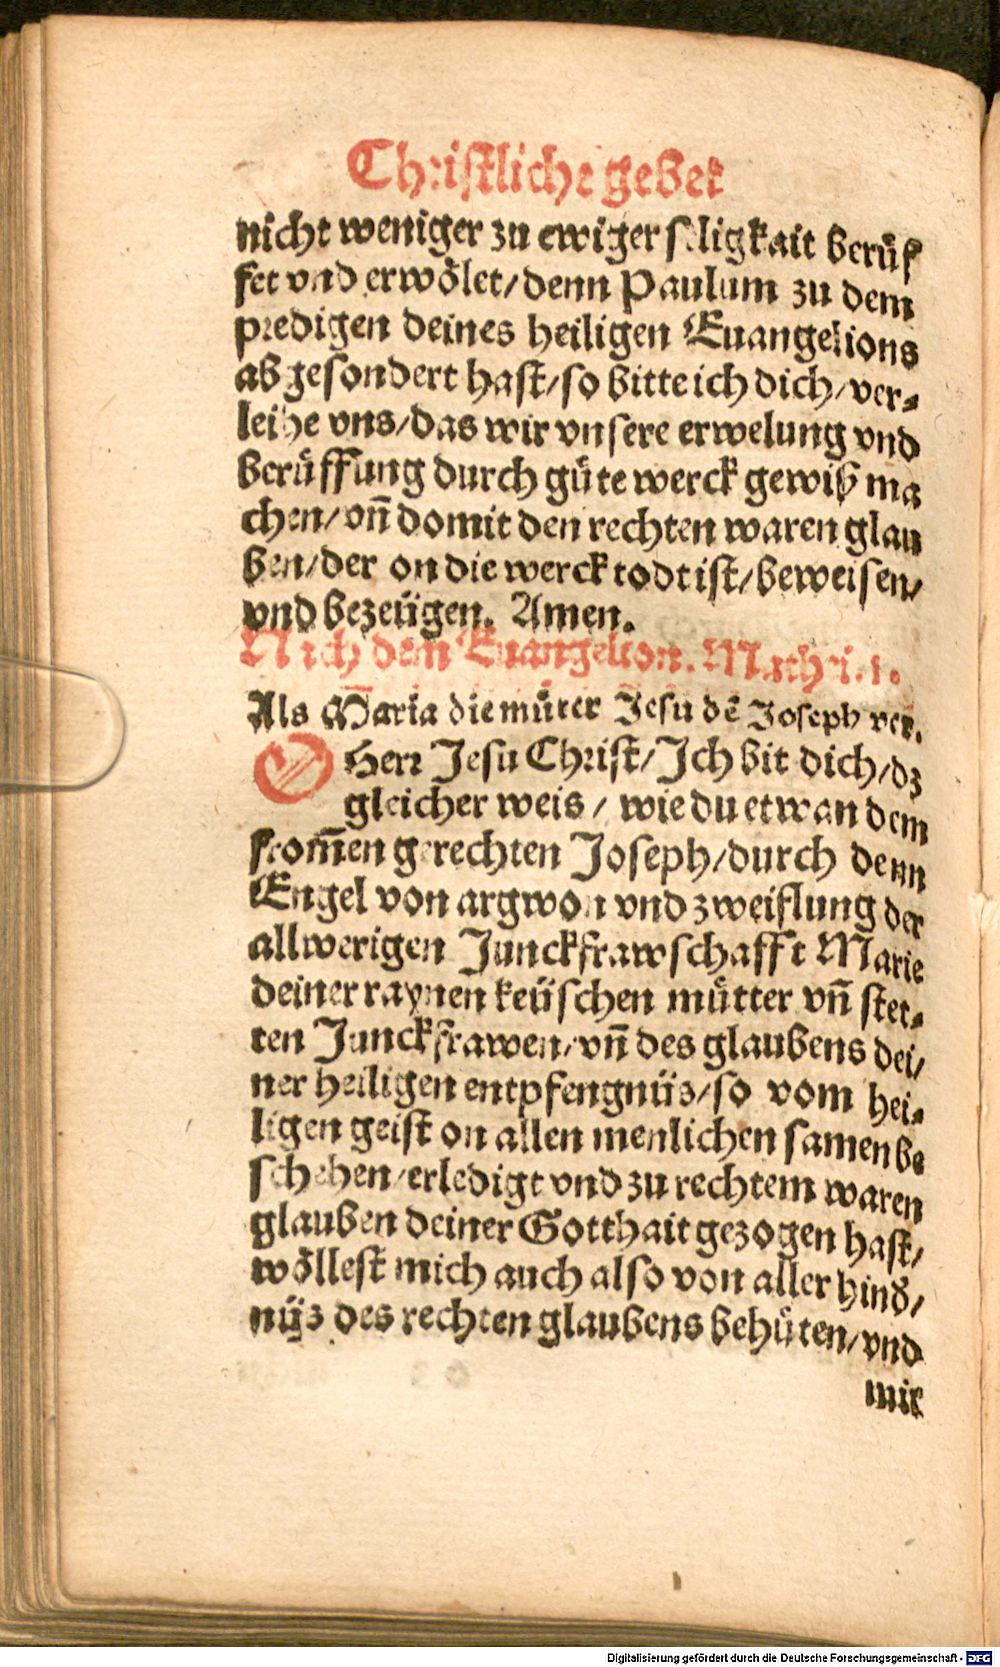 Christliche gebet
nicht weniger zu ewiger seligkait berüf
fet vnd erwölet/denn Paulum zu dem
predigen deines heiligen Euangelions
abgesondert hast/so bitte ich dich/ver⸗
leihe vns/das wir vnsere erwelung vnd
berüffung durch güte werck gewiß ma
chen/vñ domit den rechten waren glau
ben/der on die werck todt ist/beweisen/
vnd bezeügen. Amen.
Nach dem Euangelion. Mathei. 1.
Als Maria die müter Jesu dē Joseph ver.
O Herr Jesu Christ/Ich bit dich/dz
gleicher weis/ wie du etwan dem
from̄en gerechten Joseph/durch denn
Engel von argwon vnd zweiflung der
allwerigen Junckfrawschafft Marie
deiner raynen keüschen mütter vñ stet⸗
ten Junckfrawen/vñ des glaubens dei/
ner heiligen entpfengnüs/so vom hei⸗
ligen geist on allen menlichen samen be
schehen/erledigt vnd zu rechtem waren
glauben deiner Gotthait gezogen hast/
wöllest mich auch also von aller hind/
nüs des rechten glaubens behüten/vnd
mit
Digitalisierung gefördert durch die Deutsche Forschungsgemeinschaft - DFG